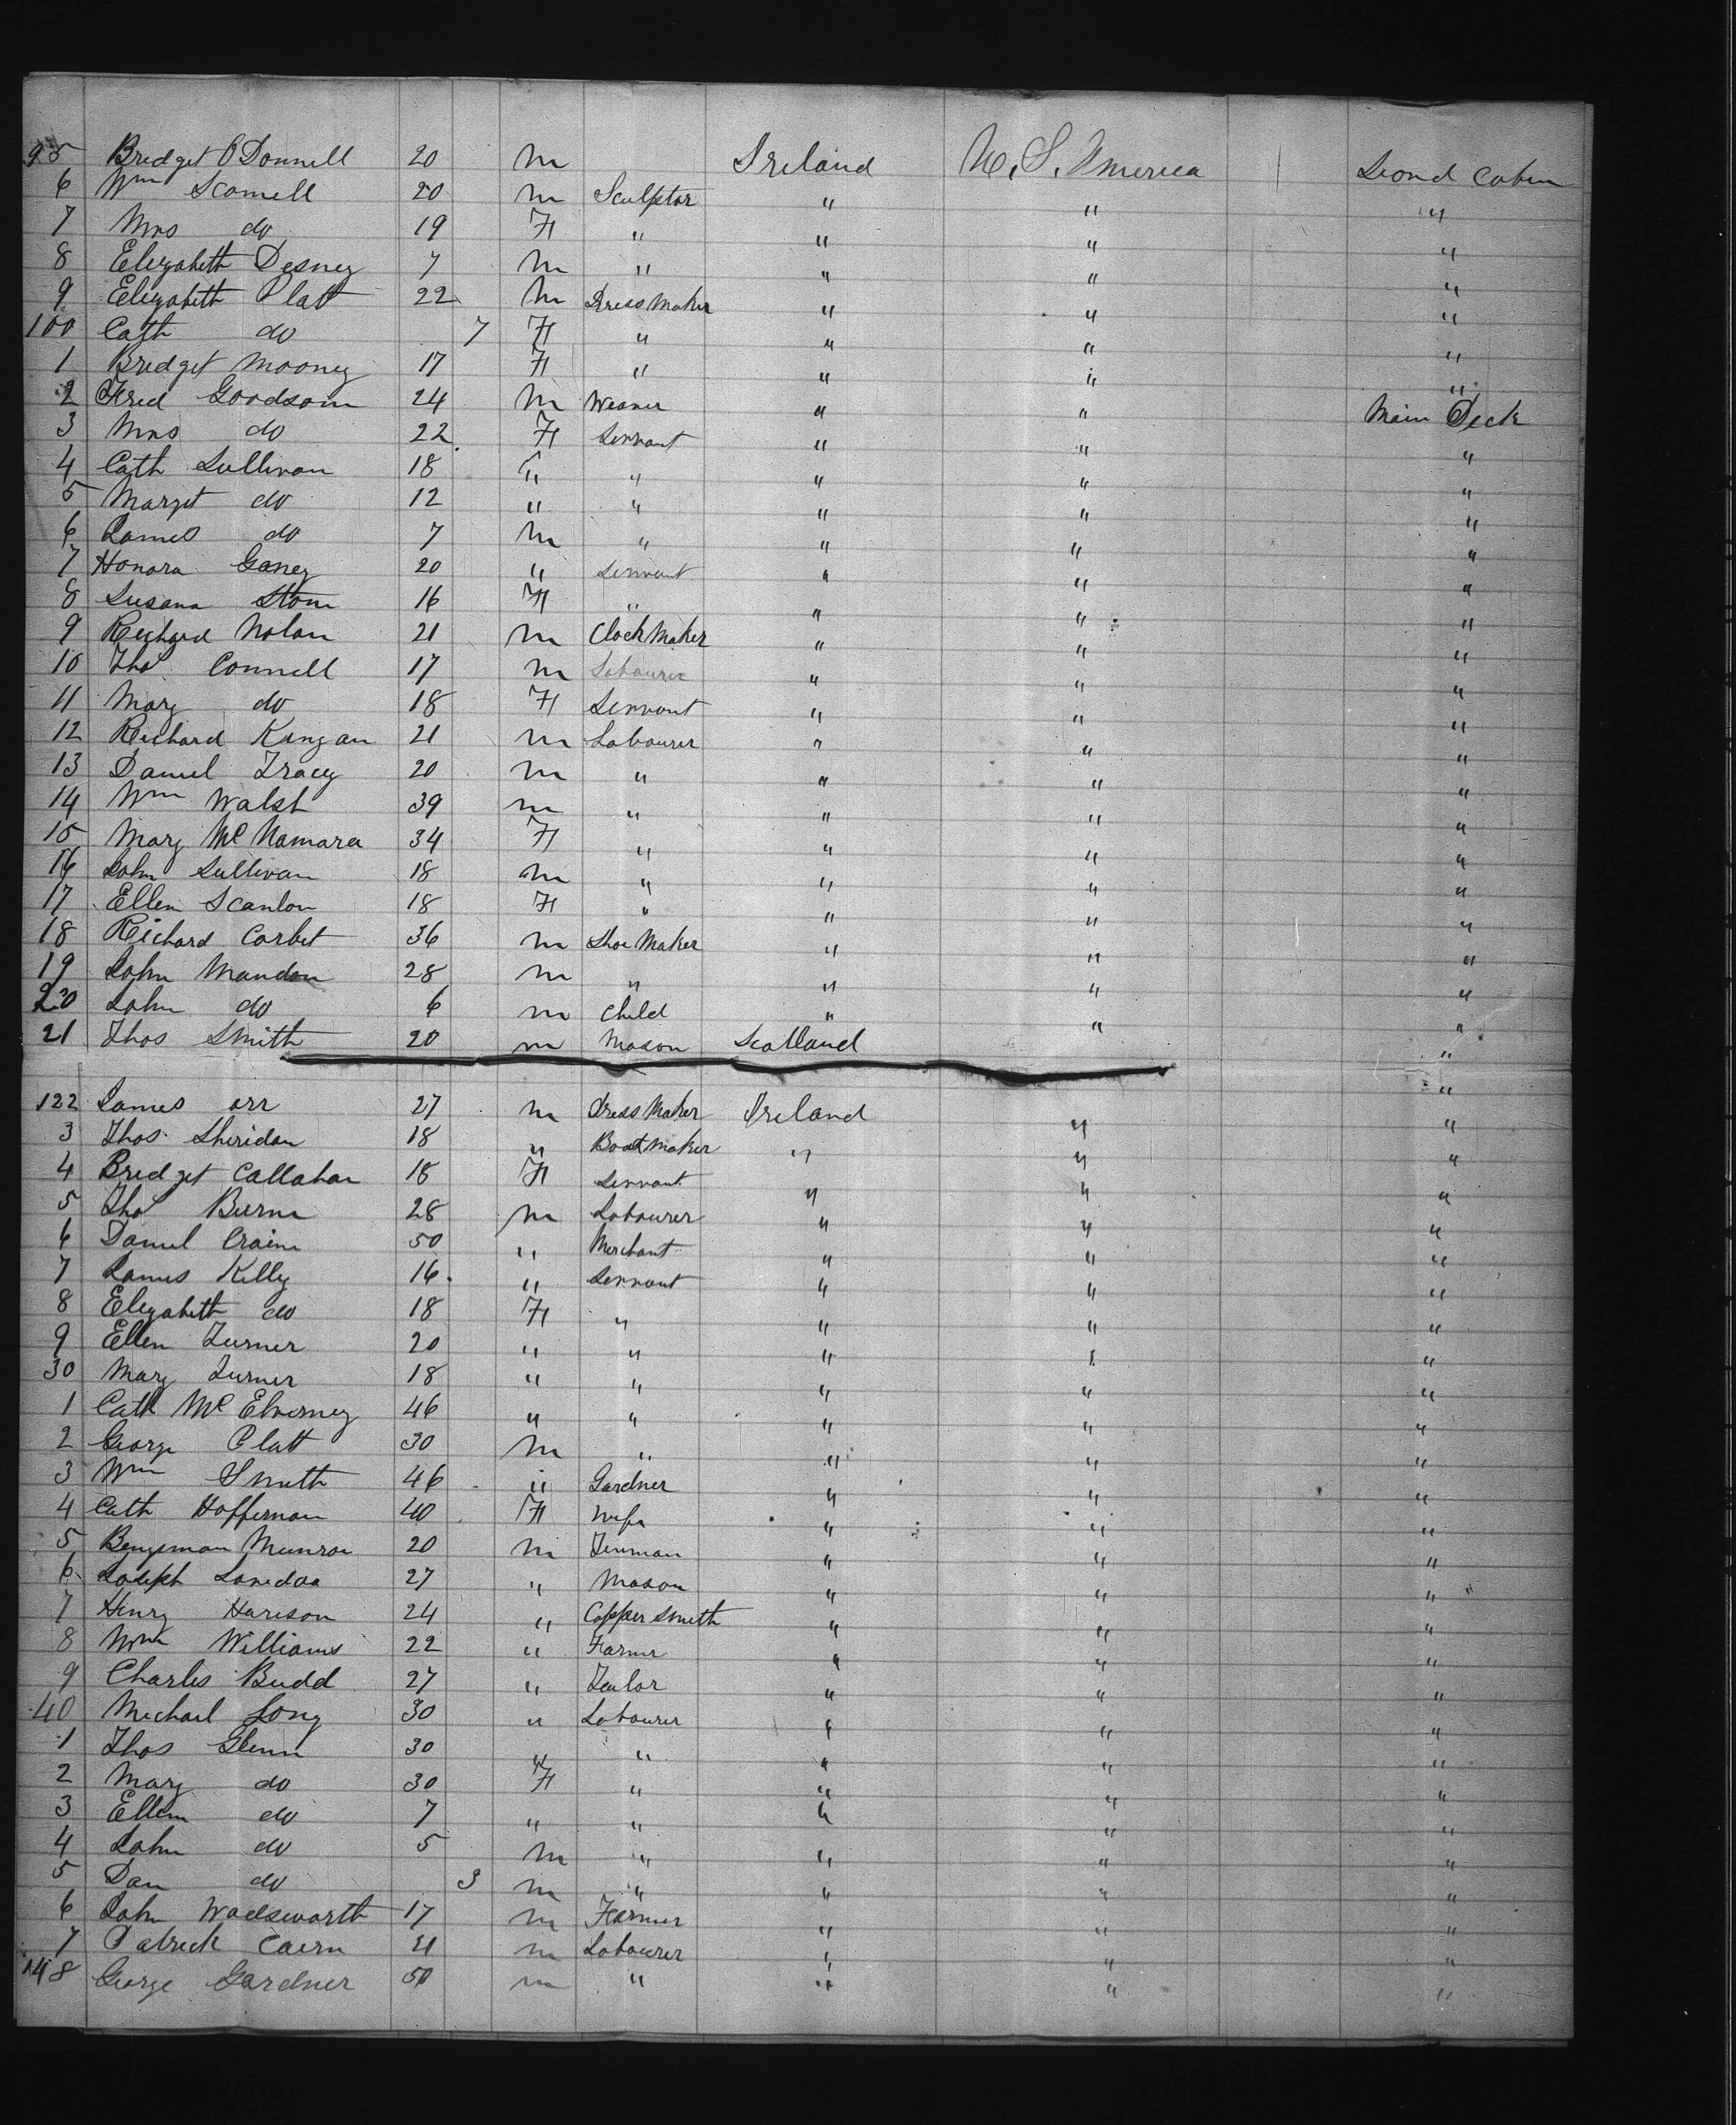 95 Bridget O'Donnell 20 m Ireland U.S. America Second Cabin
6 Wm Scomell 20 m Sculptor " " "
7 Mrs do 19 F " " " "
8 Elizabeth Desney 7 m " " " "
9 Elizabeth Platt 22 m Dress Maker " " "
100 Cath do 7 F " " " "
1 Bridget Mooney 17 F " " " "
2 Fred Goodsom 24 m Weaver " " Main Deck
3 Mrs do 22 F Servant " " "
4 Cath Sullivan 18 " " " " "
5 Marget do 12 " " " " "
6 James do 7 m " " " "
7 Honora Ganey 20 " Servant " " "
8 Susana 16 F " " " "
9 Richard Nolan 21 m Clock Maker " " "
10 Thos Connell 17 m Labourer " " "
11 Mary do 18 F Servant " " "
12 Richard Kangan 21 m Labourer " " "
13 Daniel Tracey 20 m " " " "
14 Wm Walsh 39 m " " " "
15 Mary McNamara 34 F " " " "
16 John Sullivan 18 m " " " "
17 Ellen Scanlon 18 F " " " "
18 Richard Corbet 36 m Shoe Maker " " "
19 John Mandon 28 m " " " "
20 John do 6 m Child " " "
21 Thos Smith 20 m Mason Scotland "
122 James Orr 27 m Dress Maker Ireland " "
3 Thos. Sheridan 18 " Boot Maker " " "
4 Bridget Callahan 18 F Servant " " "
5 Thos Burns 28 m Labourer " " "
6 Daniel Craine 50 " Merchant " " "
7 James Kelly 16 " Servant " " "
8 Elizabeth do 18 F " " " "
9 Ellen Turner 20 " " " " "
30 Mary Turner 18 " " " " "
1 Cath McElverney 46 " " " " "
2 George Platt 30 m " " " "
3 Wm Smith 46 " Gardner " " "
4 Cath Hoffernan 40 F Wife " " "
5 Bengeman Munroe 20 m " " "
6 Joseph 27 " Mason " " "
7 Henry Harison 24 " Copper Smith " " "
8 Wm Williams 22 " Farmer " " "
9 Charles Budd 27 " Tailor " " "
40 Michael Long 30 " Labourer " " "
1 Thos Glenn 30 " " " " "
2 Mary do 30 F " " " "
3 Ellen do 7 " " " " "
4 John do 5 m " " " "
5 Dan do 3 m " " " "
6 John Wadsworth 17 m Farmer " " "
7 Patrick Cairn 21 m Labourer " " "
148 George Gardner 50 m " " " "